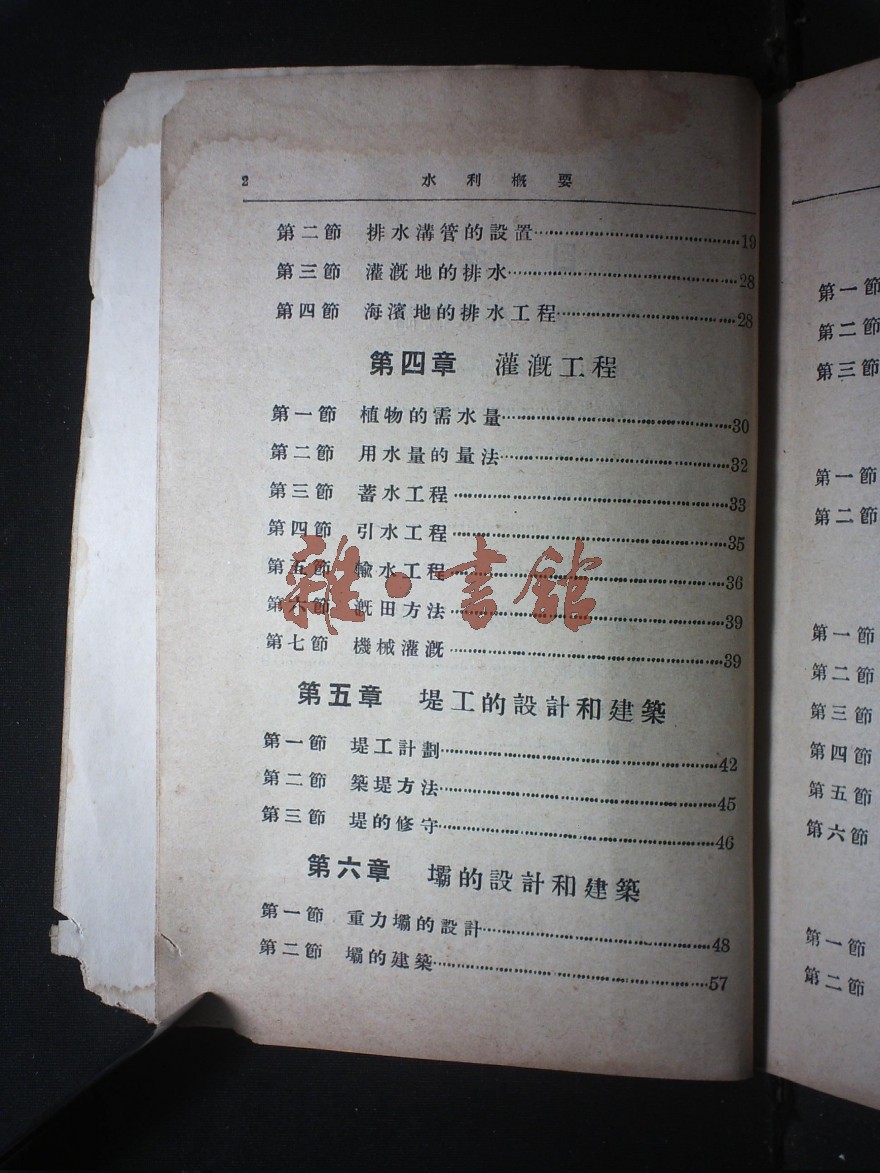 2 水利概要
第二節 排水溝管的設置……19
第三節 灌漑地的排水……28
第四節 海濱地的排水工程……28
第四章 灌漑工程
第一節 植物的需水量……30
第二節 用水量的量法……32
第三節 蓄水工程……33
第四節 引水工程……35
第五節 輸水工程……36
第六節 漑田方法……39
第七節 機械灌漑……39
第五章 堤工的設計和建築
第一節 堤工計劃……42
第二節 築堤方法……45
第三節 堤的修守……46
第六章 壩的設計和建築
第一節 重力壩的設計……48
第二節 壩的建築……57
雜·書館
第一節
第二節
第三節
第一節
第二節
第一節
第二節
第三節
第四節
第五節
第六節
第一節
第二節